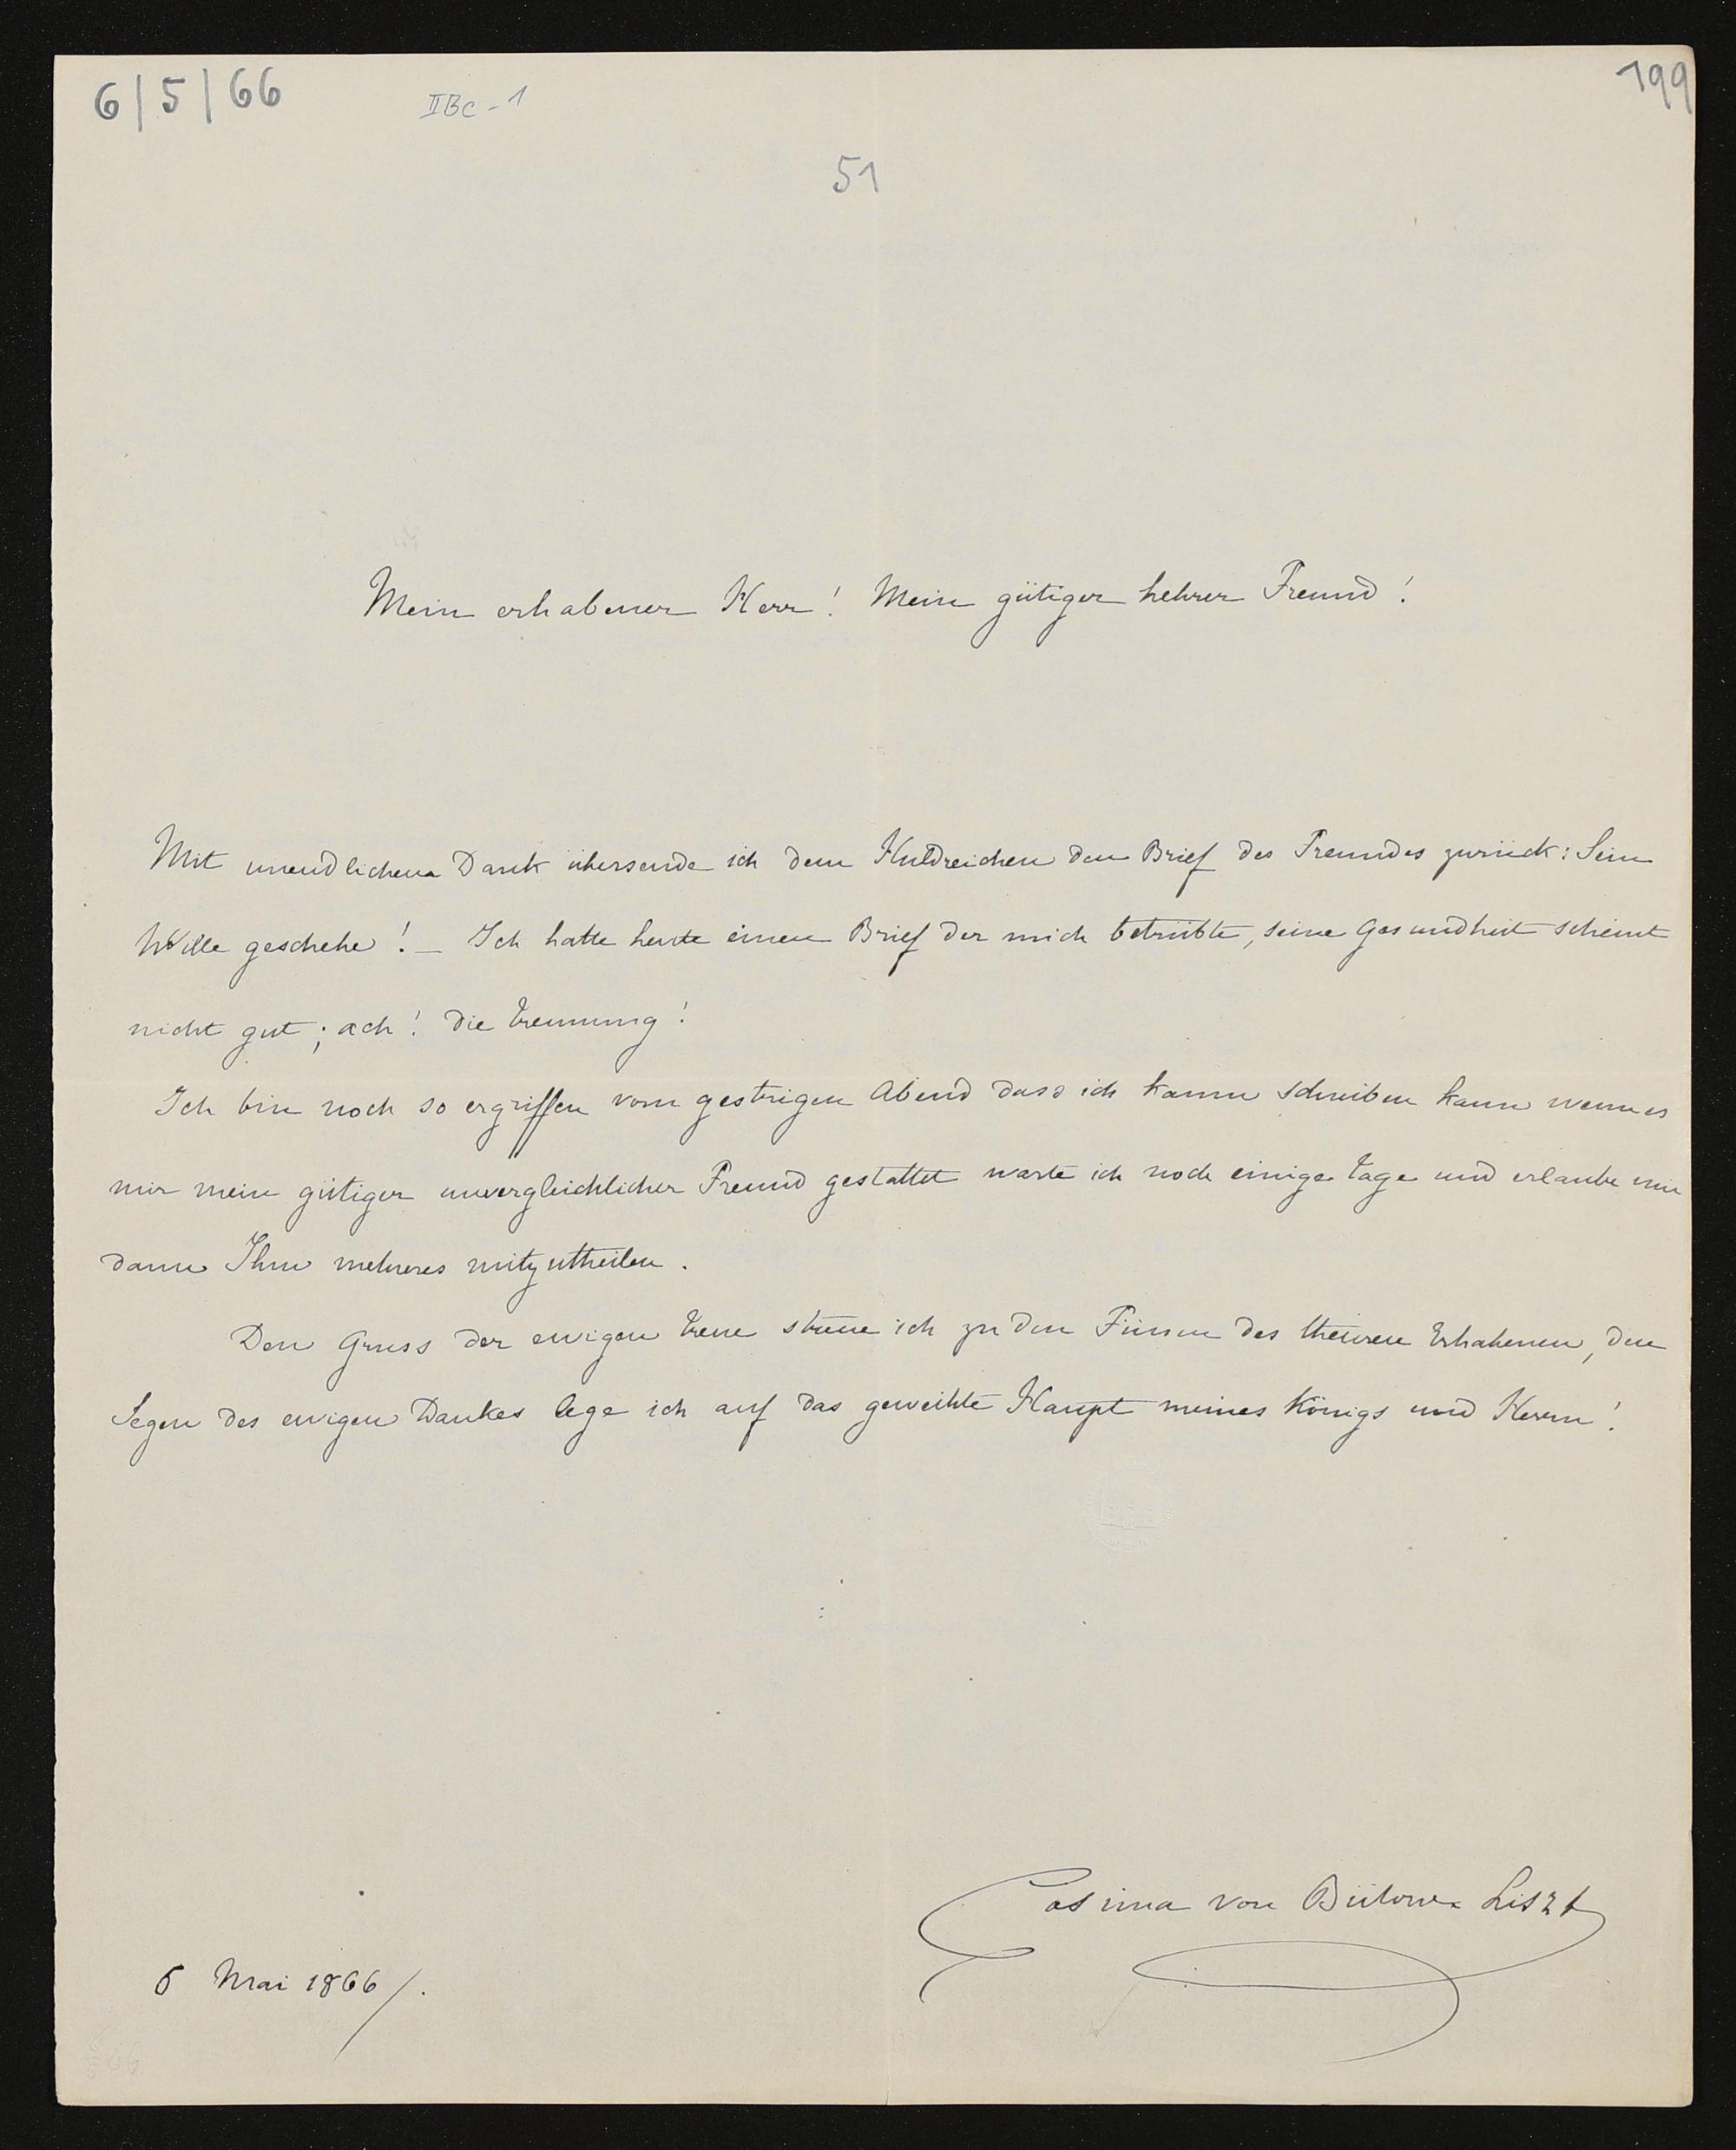 6/5/66
II Bc - 1
199
51
Mein erhabener Herr! Mein gütiger hehrer Freund!
Mit unendlichem Dank übersende ich dem Huldreichen den Brief des Freundes zurück: Sein
Wille geschehe! – Ich hatte heute einen Brief der mich betrübte, seine Gesundheit scheint
nicht gut; ach! die Trennung!
Ich bin noch so ergriffen vom gestrigen Abend dass ich kaum schreiben kann wenn es
mir mein gütiger unvergleichlicher Freund gestattet warte ich noch einige Tage und erlaube mir
dann Ihm mehreres mitzutheilen.
Den Gruss der ewigen Treue streue ich zu den Füssen des theuren Erhabenen, den
Segen des ewigen Dankes lege ich auf das geweihte Haupt meines Königs und Herrn!
Cosima von Bülow-Liszt
6 Mai 1866/.